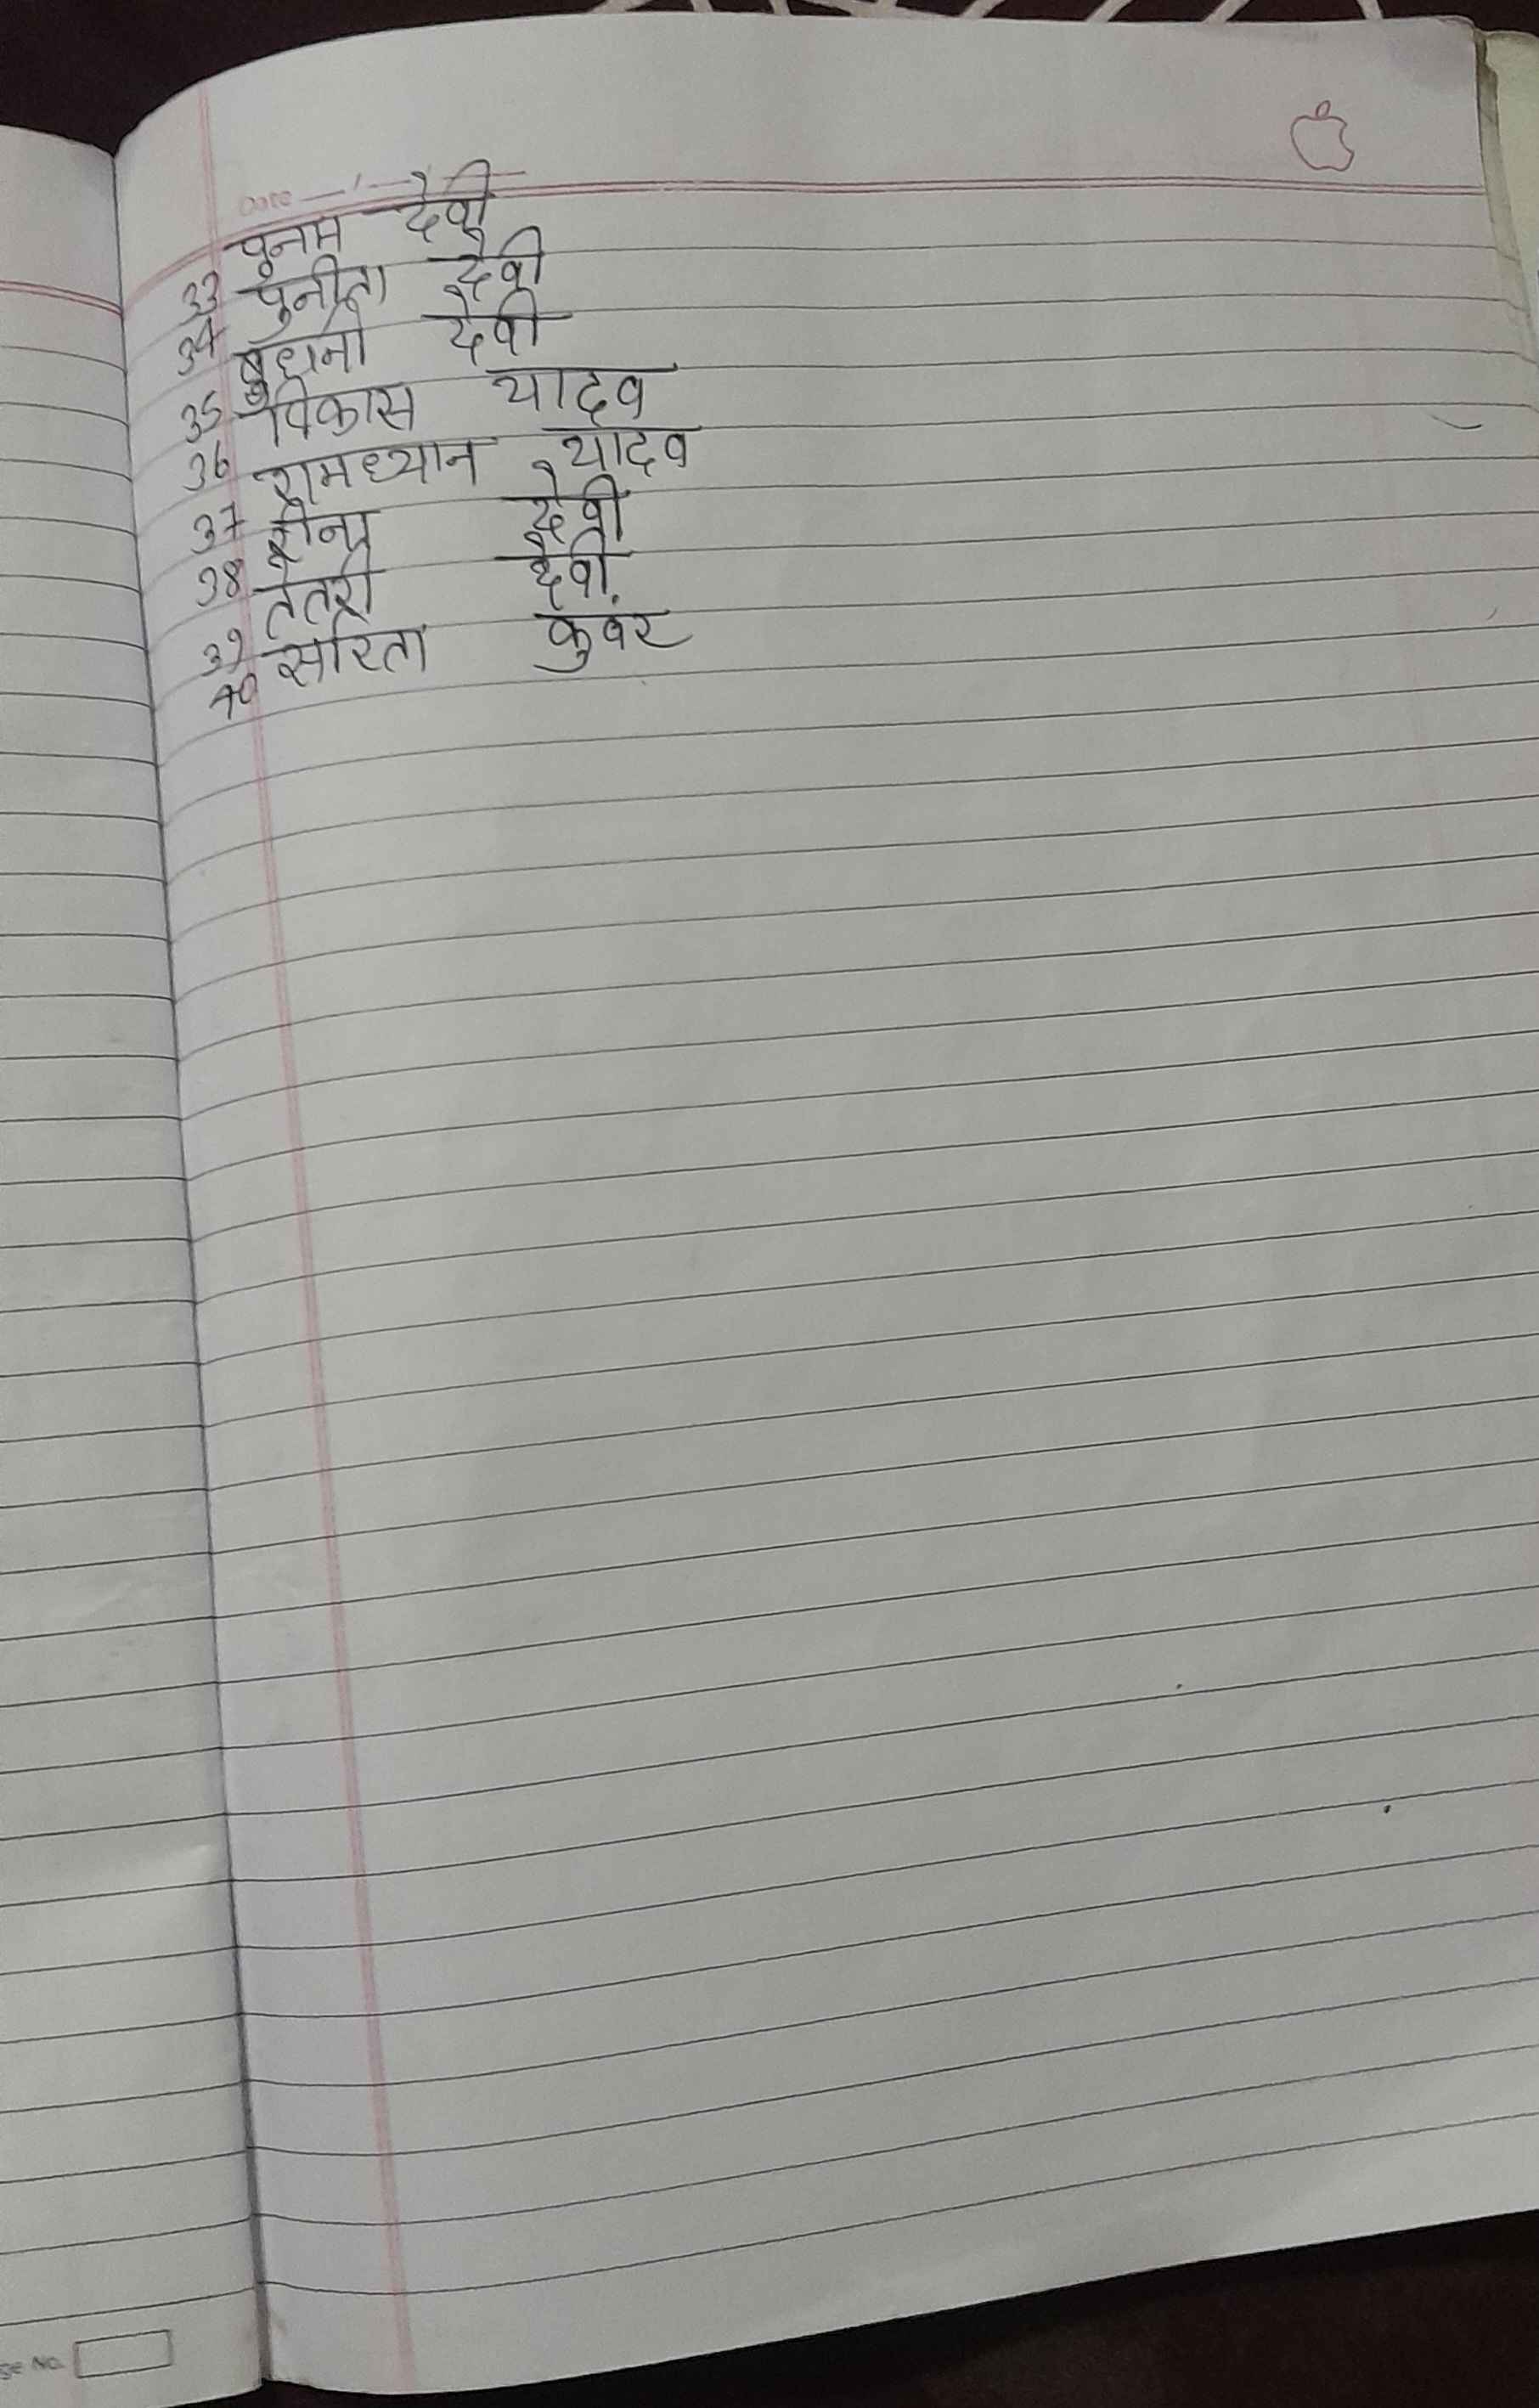 Date
33 पुनम देवी
34 पुनीता देवी
35 बुधनी देवी
36 विकास यादव
37 रामध्यान यादव
38 रीना देवी
39 तेतरी देवी
40 सरिता कुवंर
ge No.